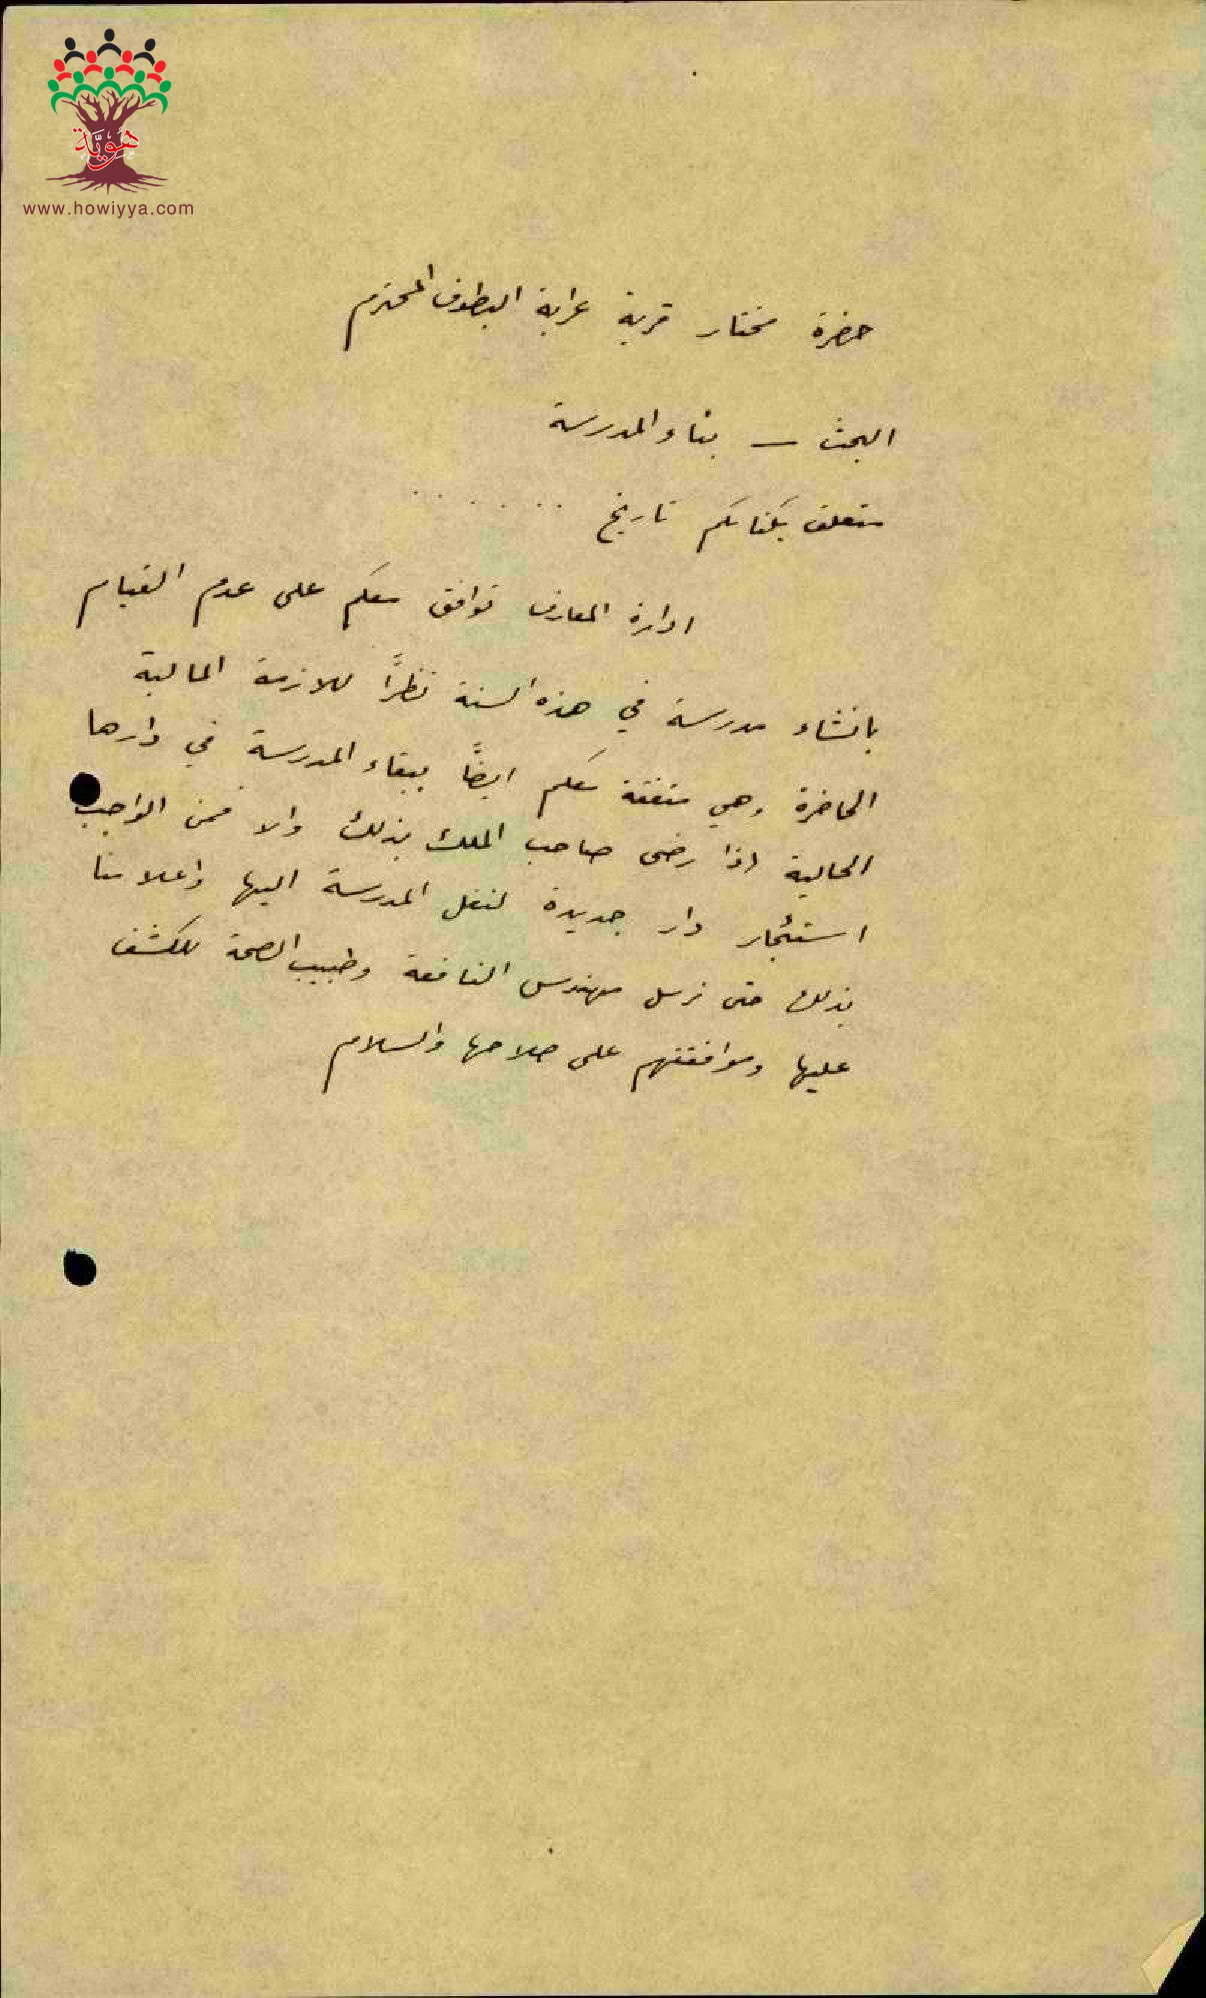 هوية
www.howiyya.com
حضرة مختار قرية عرابة البطوف المحترم
البحث — بناء المدرسة
متعلق بكتابكم تاريخ . . . . . . .
ادارة المعارف توافق معكم على عدم القيام
بانشاء مدرسة في هذه السنة نظراً للازمة المالية
الحاضرة وهي متفقة معكم ايضاً ببقاء المدرسة في دارها
الحالية اذا رضى صاحب الملك بذلك والا فمن الواجب
استئجار دار جديدة لنقل المدرسة اليها واعلامنا
بذلك حتى نرسل مهندس النافعة وطبيب الصحة للكشف
عليها وموافقتهم على صلاحها والسلام